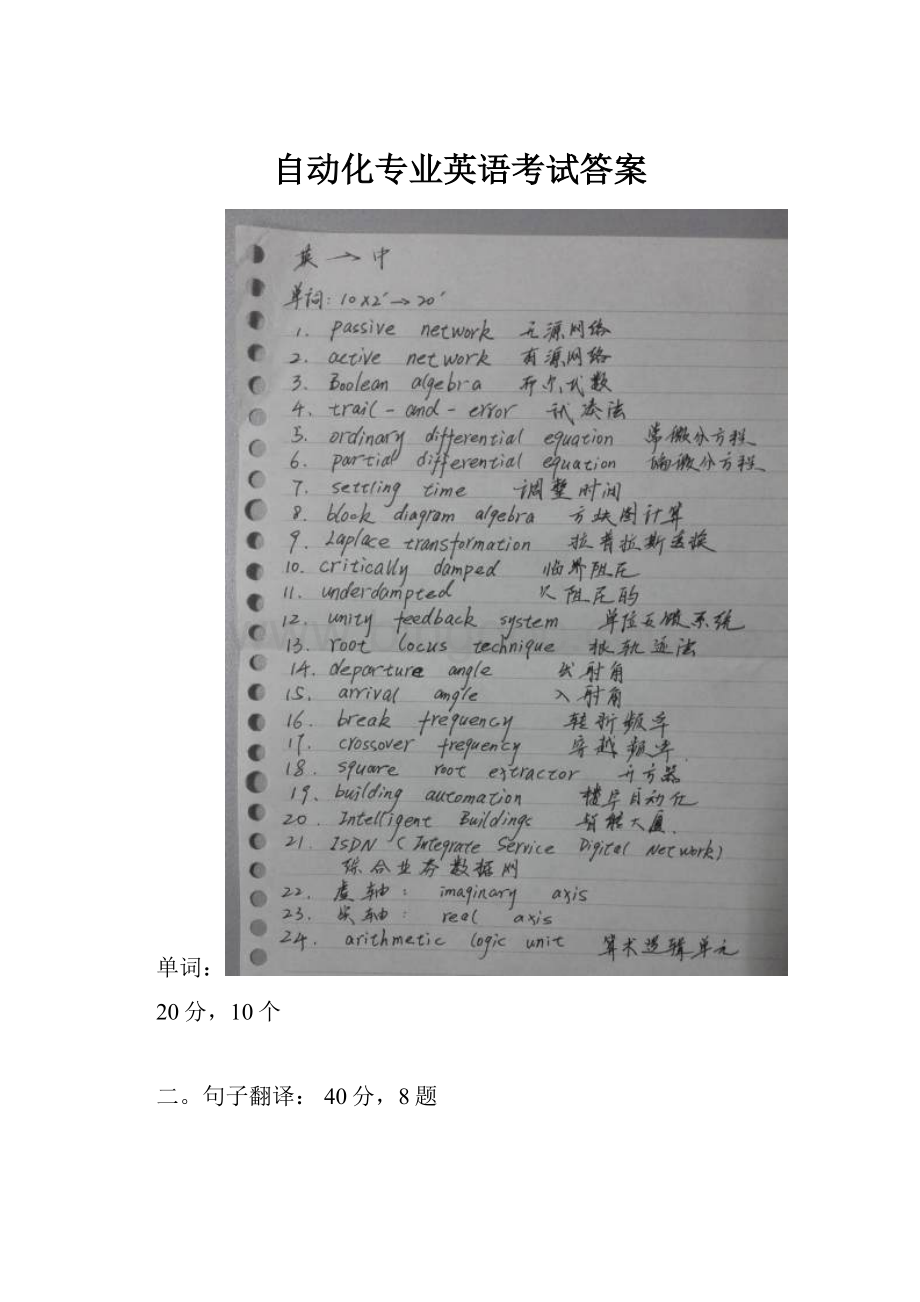 自动化专业英语考试答案
英→中
单词：10×2'→20'
1. passive network 无源网络
2. active network 有源网络
3、Boolean algebra 开尔代数
4、trail-and-error 试凑法
5. ordinary differential equation 常微分方程
6. partial differential equation 偏微分方程
7. settling time 调整时间
8. block diagram algebra 方块图计算
9. Laplace transformation 拉普拉斯变换
10. critically damped 临界阻尼
11. underdampted 欠阻尼的
12. unity feedback system 单位反馈系统
13. root locus technique 根轨迹法
14. departure angle 出射角
15. arrival angle 入射角
16. break frequency 转折频率
17. crossover frequency 穿越频率
18. square root extractor 开方器
19. building automation 楼宇自动化
20. Intelligent Buildings 智能大厦
21. ISDN (Integrate Service Digital Network)
综合业务数据网
22. 虚轴： imaginary axis
23. 实轴： real axis
24. arithmetic logic unit 算术逻辑单元
单词：
20分，10个
二。句子翻译： 40分，8题